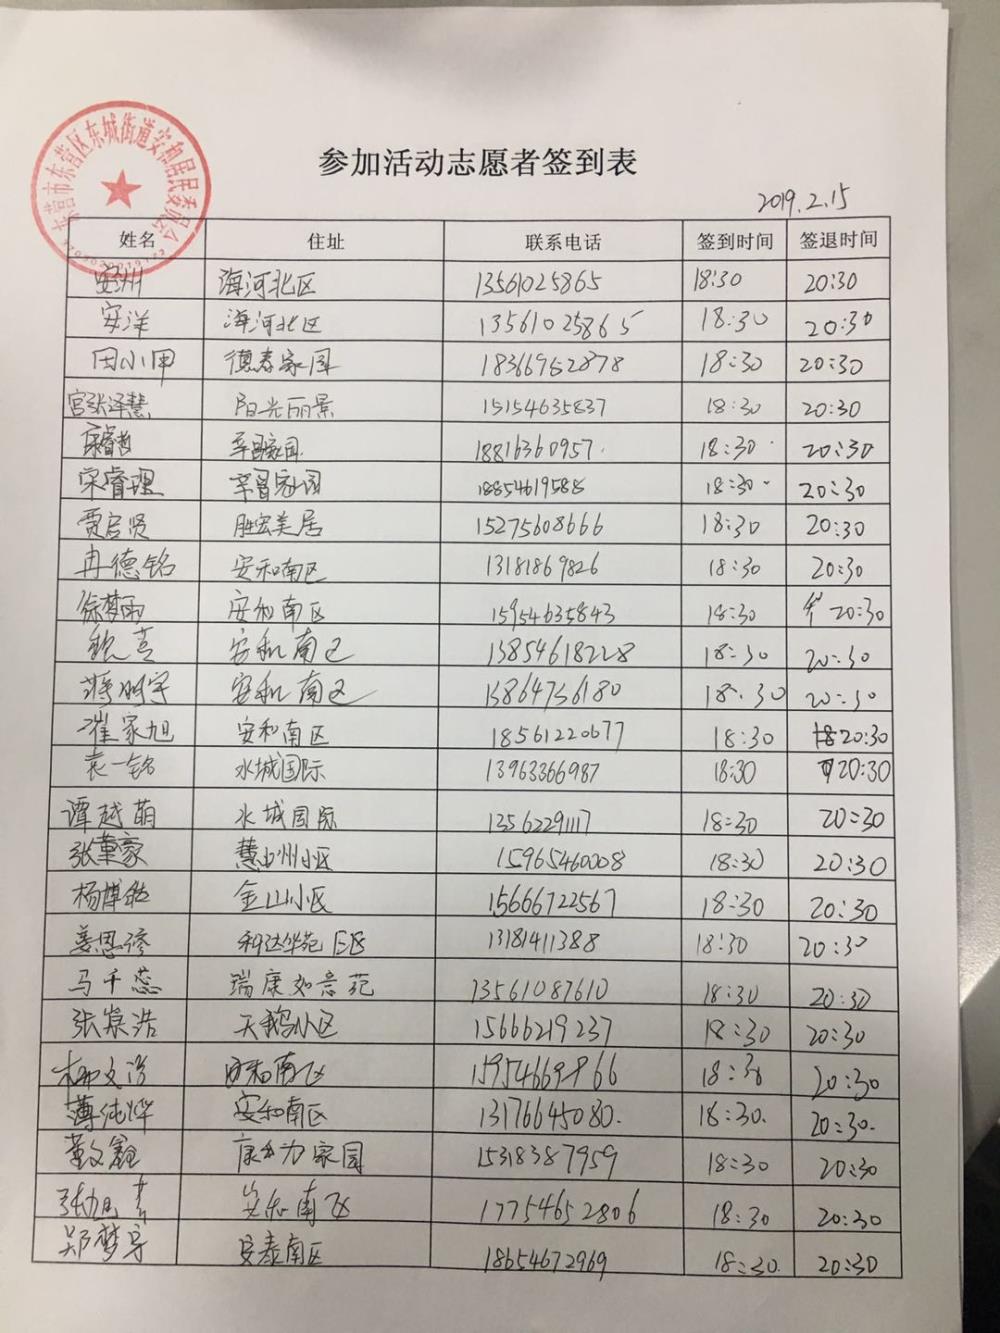 东营市东营区东城街道安和居民委员会
参加活动志愿者签到表
2019.2.15
姓名 住址 联系电话 签到时间 签退时间
安州 海河北区 13561025865 18:30 20:30
安洋 海河北区 13561025865 18:30 20:30
田小甲 德泰家园 18366952878 18:30 20:30
宫张泽慧 阳光丽景 15154635837 18:30 20:30
宋睿哲 辛昌家园 18816360957 18:30 20:30
宋睿理 辛昌家园 18:30 20:30
贾启贤 胜宏美居 15275608666 18:30 20:30
冉德铭 安和南区 13181869826 18:30 20:30
徐梦雨 安和南区 15954635843 18:30 20:30
安和南区 13854618228 18:30 20:30
蒋明宇 安和南区 13864756180 18:30 20:30
崔家旭 安和南区 18561220677 18:30 20:30
袁一铭 水城国际 13963366987 18:30 20:30
谭越萌 水城国际 13562291117 18:30 20:30
张菓豪 小区 15965460008 18:30 20:30
杨博 金山小区 15666722567 18:30 20:30
姜恩 利达华苑E区 13181411388 18:30 20:30
马千蕊 瑞康如意苑 13561087610 18:30 20:30
张崇浩 天鹅小区 15666219237 18:30 20:30
柳文浩 安和南区 18:30 20:30
薄纯烨 安和南区 13176645080. 18:30. 20:30.
董文鑫 家园 15318387959 18:30 20:30
张旭 安和南区 17754652806 18:30 20:30
郑梦宇 安泰南区 18654672969 18:30. 20:30